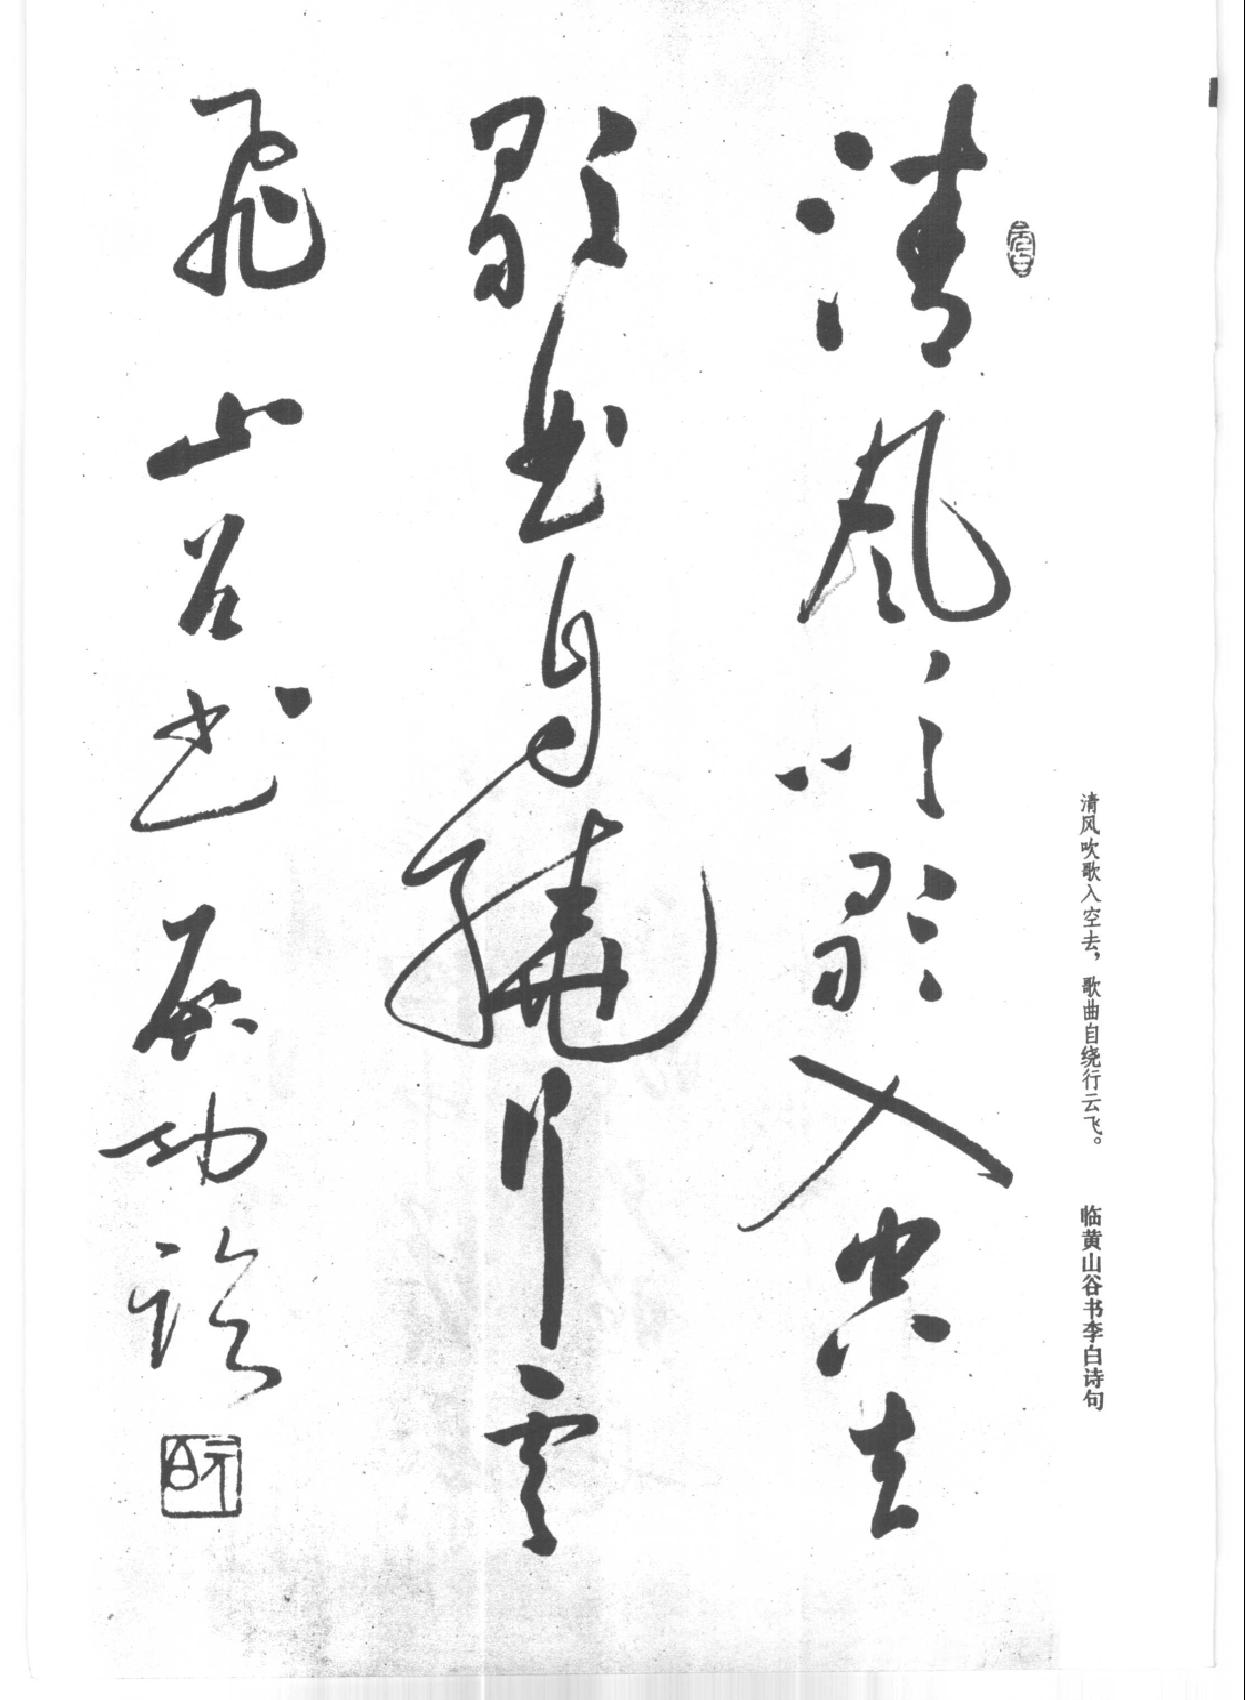 清风吹歌入空去，歌曲自绕行云飞。 临黄山谷书李白诗句
清風吹歌入空去
歌曲自繞行雲
飛 山谷書 啟功臨